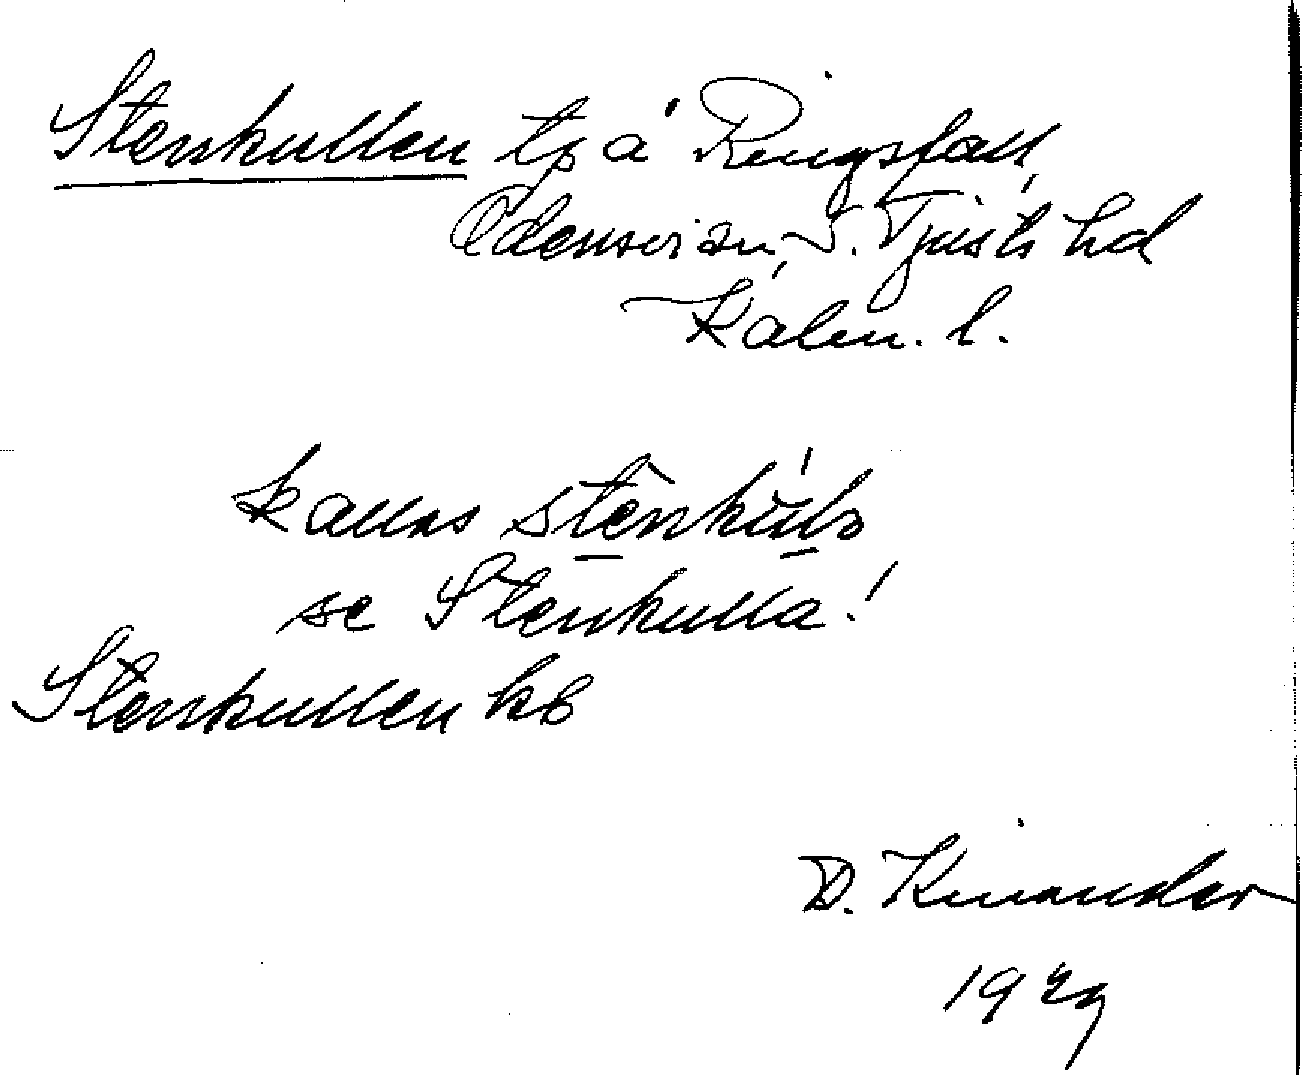 Stenkullen tp å Ringsfall,
Odensvi sn, S. Tjusts hd
Kalm. l.
kallas
se Stenkulla!
Stenkullen kb
D. Kinander
19